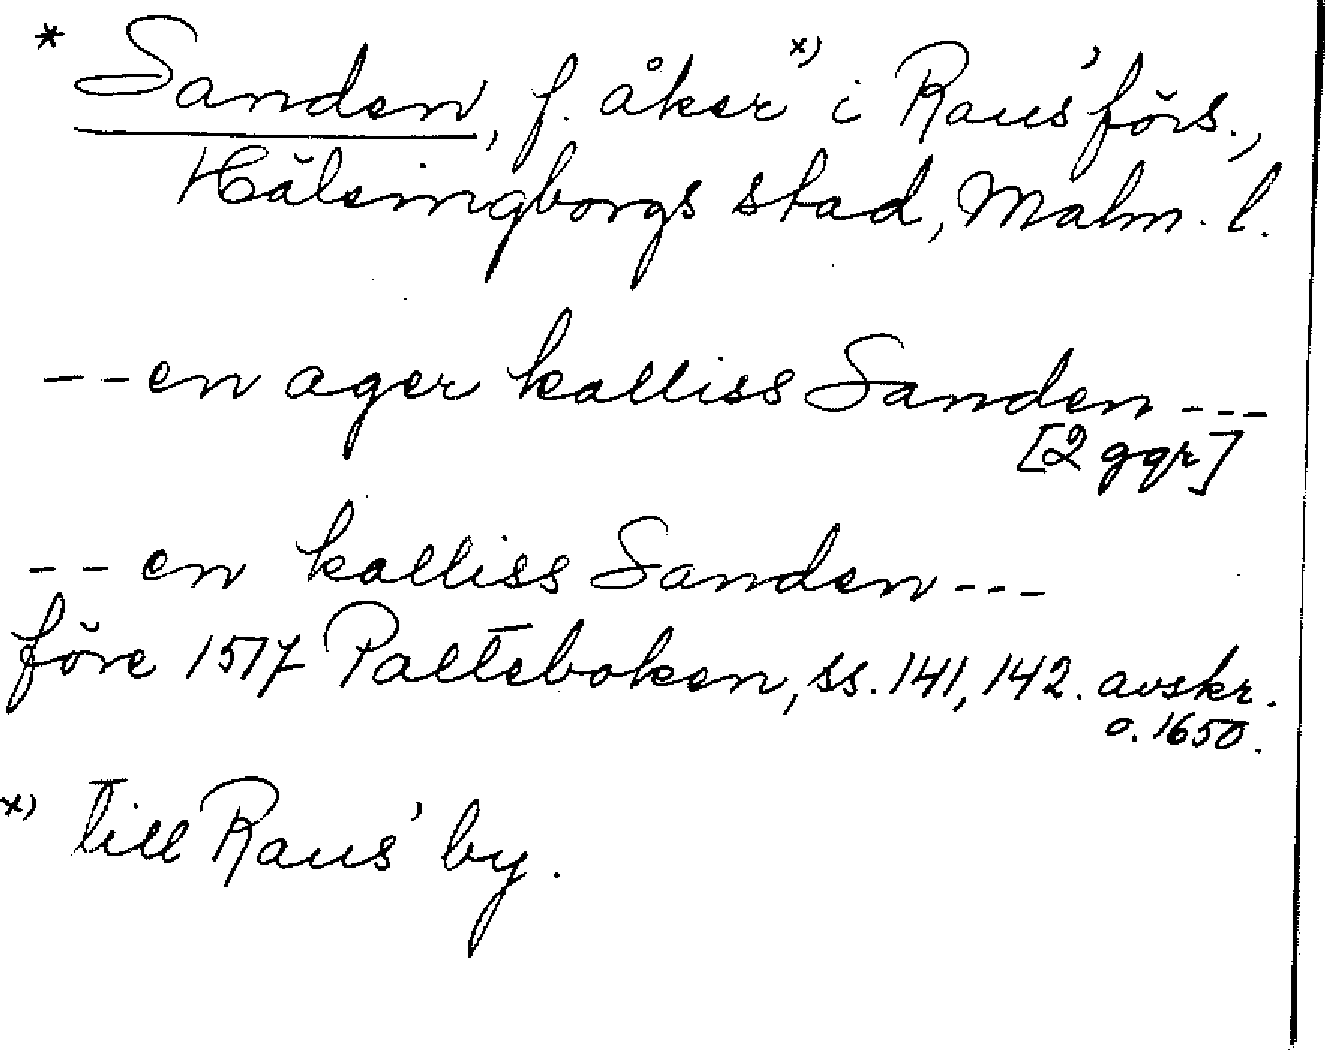 * Sanden, f. åker x) i Raus' förs.,
Hälsingborgs stad, Malm. l.
-- en ager kalliss Sanden ---
[2 ggr]
-- en kalliss Sanden ---
före 1517 Palteboken, ss. 141, 142. avskr.
o. 1650.
x) till Raus' by.